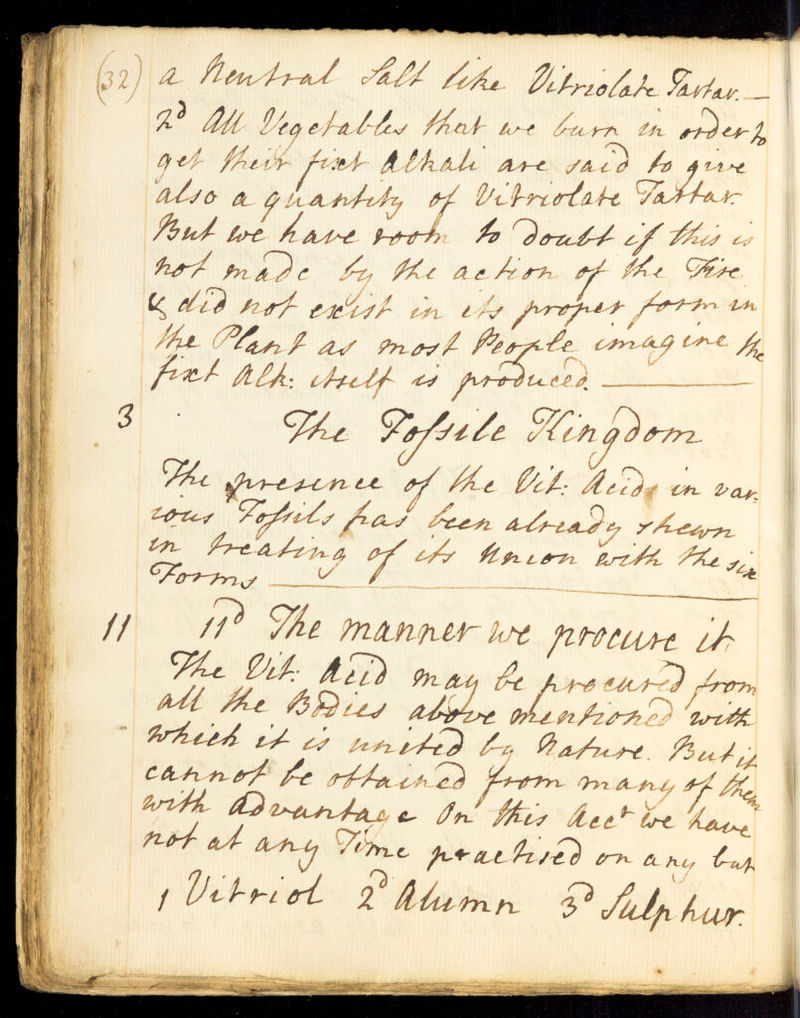 (32) a Neutral Salt like Vitriolate Tartar. —
2d All Vegetables that we burn in order to
get their fixt Alkali are said to give
also a quantity of Vitriolate Tartar.
But we have room to doubt if this is
not made by the action of the Fire
& did not exist in its proper form in
the Plant as most People imagine the
fixt Alk: itself is produced. —
3 The Fossile Kingdom
The presence of the Vit: Acid in var=
ious Fossils has been already shewn
in treating of its Union with the six
Forms —
11 11d The manner we procure it
The Vit: Acid may be procured from
all the Bodies above mentioned with
which it is united by Nature. But it
cannot be obtained from many of them
with advantage On this Acct we have
not at any Time practised on any but
1 Vitriol 2d Alumn 3d Sulphur.